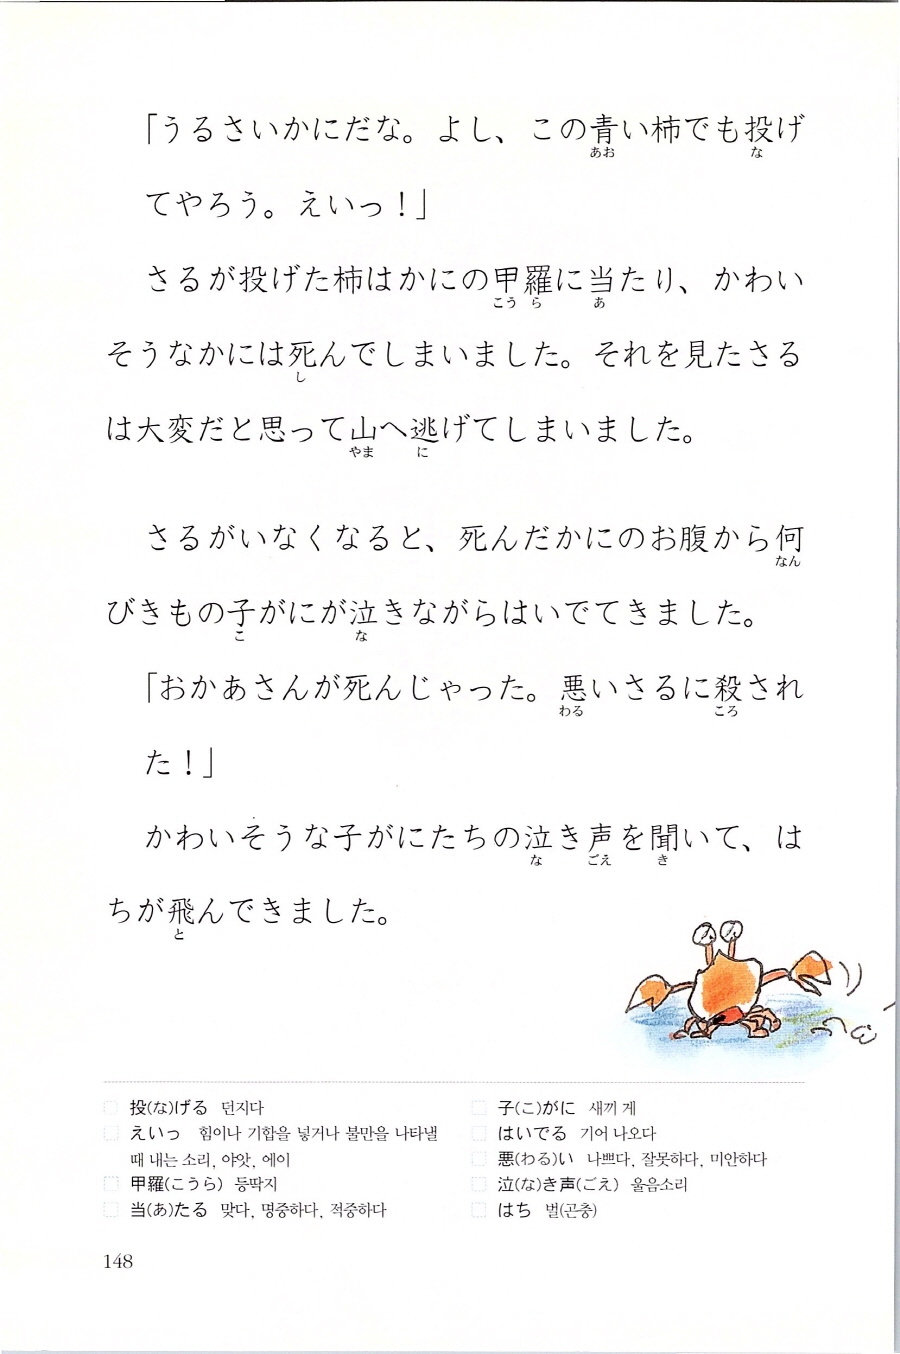 「うるさいかにだな。よし、この青い柿でも投げ
あお な
てやろう。えいっ！」
さるが投げた柿はかにの甲羅に当たり、かわい
こう ら あ
そうなかには死んでしまいました。それを見たさる
し
は大変だと思って山へ逃げてしまいました。
やま に
さるがいなくなると、死んだかにのお腹から何
なん
びきもの子がにが泣きながらはいでてきました。
こ な
「おかあさんが死んじゃった。悪いさるに殺され
わる ころ
た！」
かわいそうな子がにたちの泣き声を聞いて、は
な ごえ き
ちが飛んできました。
と
投(な)げる 던지다
えいっ 힘이나 기합을 넣거나 불만을 나타낼
때 내는 소리, 야앗, 에이
甲羅(こうら) 등딱지
当(あ)たる 맞다, 명중하다, 적중하다
子(こ)がに 새끼 게
はいでる 기어 나오다
悪(わる)い 나쁘다, 잘못하다, 미안하다
泣(な)き声(ごえ) 울음소리
はち 벌(곤충)
148